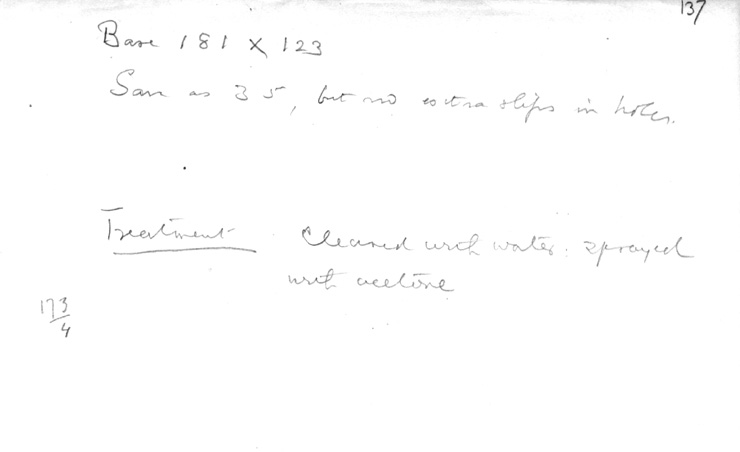 137
Base 181 x 123
Same as 35, but no extra slips in holes.
Treatment Cleaned with water. sprayed
with acetone
173/4